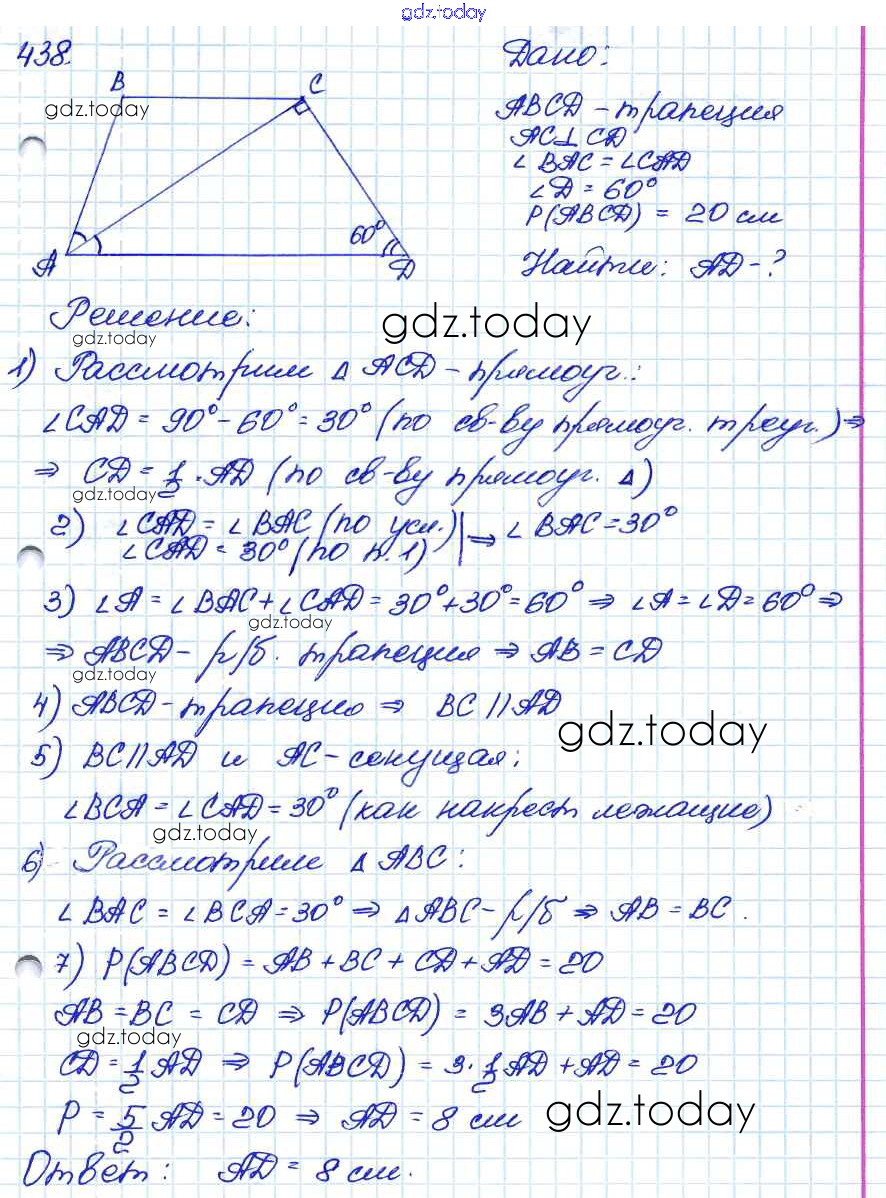 gdz.today
438.
B
C
A
60°
D
gdz.today
Дано:
ABCD - трапеция
AC⊥CD
∠BAC = ∠CAD
∠D = 60°
P(ABCD) = 20 см
Найти: AD - ?
Решение:
gdz.today
gdz.today
1) Рассмотрим △ ACD - прямоуг.:
∠CAD = 90° - 60° = 30° (по св-ву прямоуг. треуг.) ⇒
⇒ CD = 1/2 · AD (по св-ву прямоуг. △)
gdz.today
2) ∠CAD = ∠BAC (по усл.) | ⇒ ∠BAC = 30°
∠CAD = 30° (по п. 1)
3) ∠A = ∠BAC + ∠CAD = 30° + 30° = 60° ⇒ ∠A = ∠D = 60° ⇒
gdz.today
⇒ ABCD - р/б. трапеция ⇒ AB = CD
gdz.today
4) ABCD - трапеция ⇒ BC || AD
gdz.today
5) BC || AD и AC - секущая;
∠BCA = ∠CAD = 30° (как накрест лежащие)
gdz.today
6) Рассмотрим △ ABC:
∠BAC = ∠BCA = 30° ⇒ △ABC - р/б ⇒ AB = BC.
7) P(ABCD) = AB + BC + CD + AD = 20
AB = BC = CD ⇒ P(ABCD) = 3AB + AD = 20
gdz.today
CD = 1/2 AD ⇒ P(ABCD) = 3 · 1/2 AD + AD = 20
P = 5/2 AD = 20 ⇒ AD = 8 см
gdz.today
Ответ: AD = 8 см.